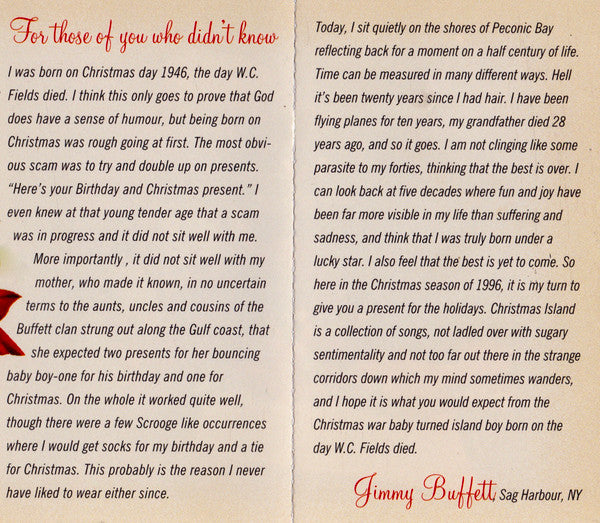 For those of you who didn't know
I was born on Christmas day 1946, the day W.C.
Fields died. I think this only goes to prove that God
does have a sense of humour, but being born on
Christmas was rough going at first. The most obvi-
ous scam was to try and double up on presents.
"Here's your Birthday and Christmas present." I
even knew at that young tender age that a scam
was in progress and it did not sit well with me.
More importantly , it did not sit well with my
mother, who made it known, in no uncertain
terms to the aunts, uncles and cousins of the
Buffett clan strung out along the Gulf coast, that
she expected two presents for her bouncing
baby boy-one for his birthday and one for
Christmas. On the whole it worked quite well,
though there were a few Scrooge like occurrences
where I would get socks for my birthday and a tie
for Christmas. This probably is the reason I never
have liked to wear either since.
Today, I sit quietly on the shores of Peconic Bay
reflecting back for a moment on a half century of life.
Time can be measured in many different ways. Hell
it's been twenty years since I had hair. I have been
flying planes for ten years, my grandfather died 28
years ago, and so it goes. I am not clinging like some
parasite to my forties, thinking that the best is over. I
can look back at five decades where fun and joy have
been far more visible in my life than suffering and
sadness, and think that I was truly born under a
lucky star. I also feel that the best is yet to come. So
here in the Christmas season of 1996, it is my turn to
give you a present for the holidays. Christmas Island
is a collection of songs, not ladled over with sugary
sentimentality and not too far out there in the strange
corridors down which my mind sometimes wanders,
and I hope it is what you would expect from the
Christmas war baby turned island boy born on the
day W.C. Fields died.
Jimmy Buffett, Sag Harbour, NY